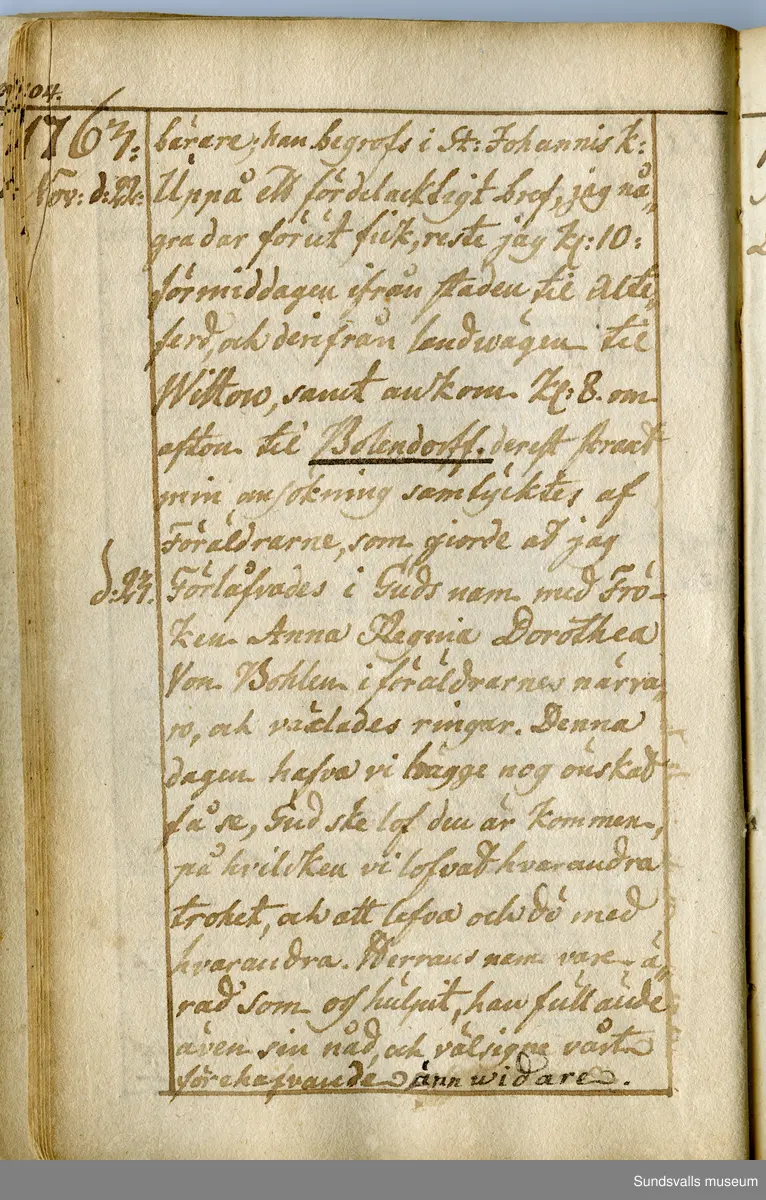 104.
1763: bärare; han begrofs i St: Johannis k:
Nov: d: 22: Uppå ett fördelacktigt bref, jag nå„
gra dar förut fick, reste jag kl: 10:
förmiddagen ifrån staden til Alte„
ferd, och derifrån landwägen til
Wittow, samt ankom kl: 8. om
afton til Bolendorff. derest straxt
min ansökning samtycktes af
Föräldrarne, som giorde at jag
d: 23. Förlåfvades i Guds namn med Frö-
ken Anna Regina Dorothea
Von Bohlen i föräldrarnes närva„
ro, och växlades ringar. Denna
dagen hafva vi bägge nog önskat
få se, Gud ske lof den är kommen,
på hvilcken vi lofvat hvarandra
trohet, och att lefva och dö med
hvarandra. Herrans namn vare ä„
rad som oss hulpit, han fullände
även sin nåd, och välsigne vårt
förehafvande änn widare.
Sundsvalls museum